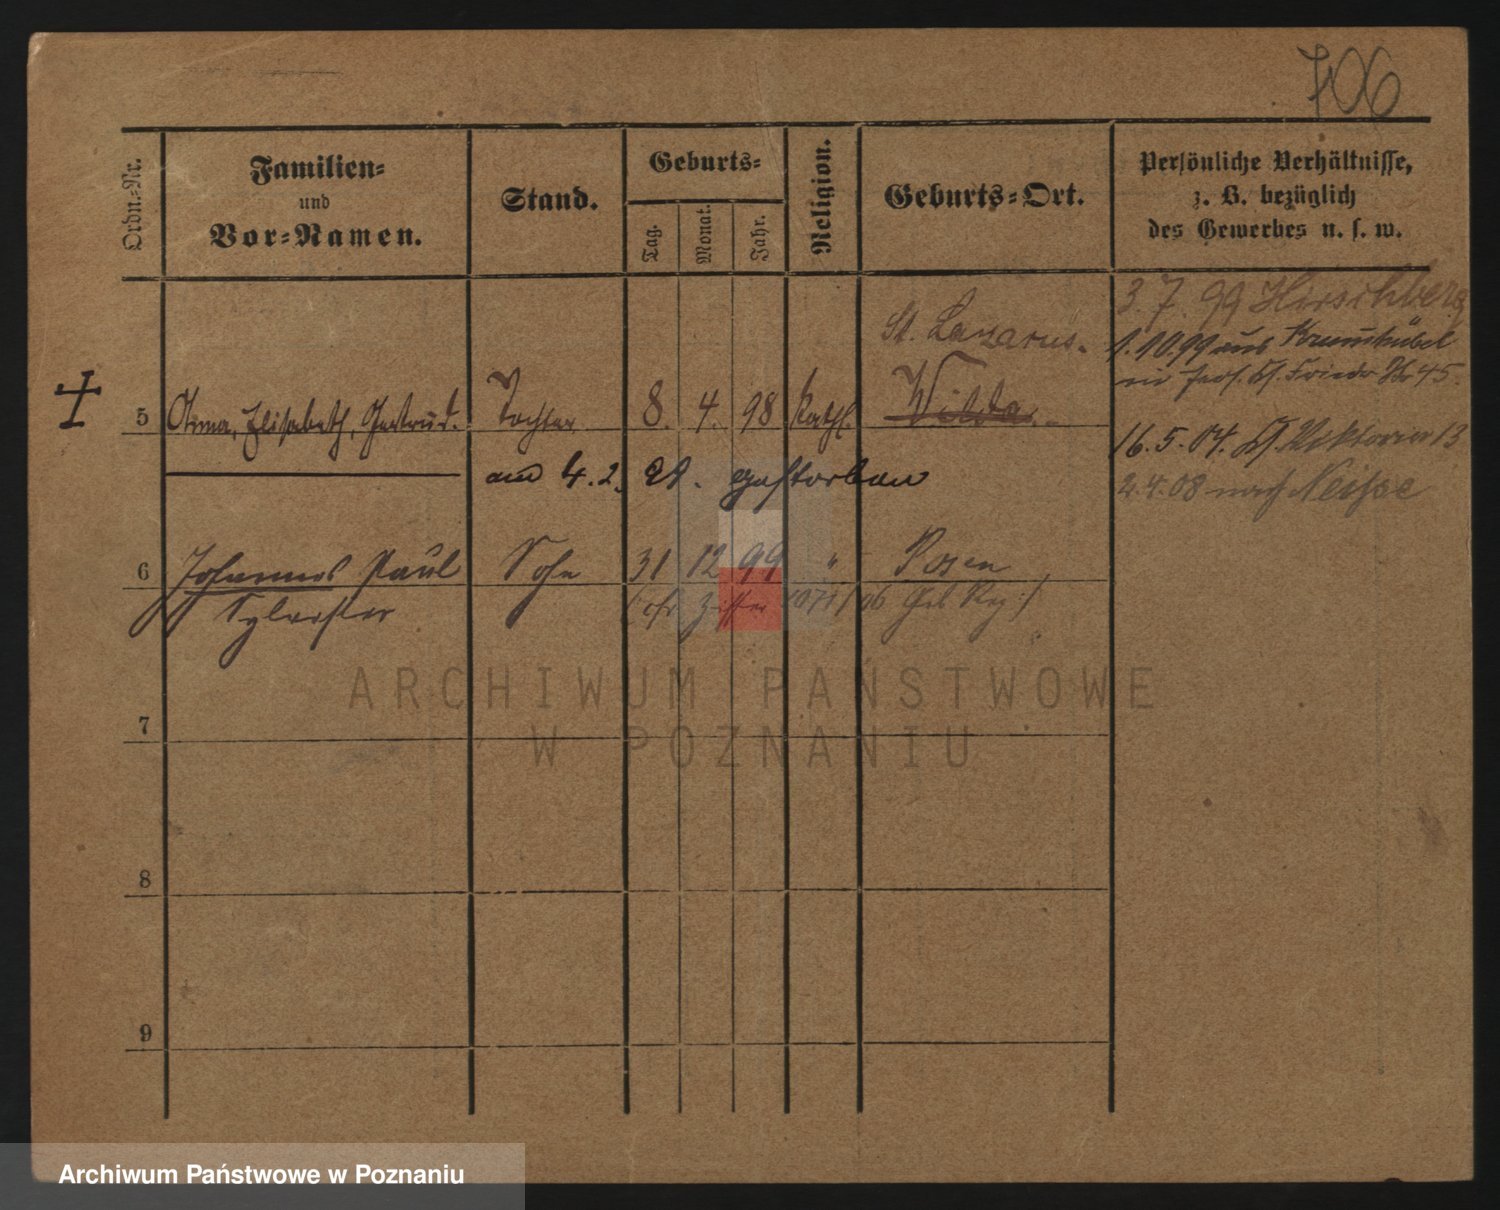 706
Ordn.=Nr.
Familien=
und
Vor=Namen.
Stand.
Geburts=
Tag.
Monat.
Jahr.
Religion.
Geburts=Ort.
Persönliche Verhältnisse,
z. B. bezüglich
des Gewerbes u. s. w.
3.7.99 Hirschberg
1.10.99 aus Krummhübel
Friedr 45.
St. Lazarus.
5 Anna, Elisabeth, Gertrud. Tochter 8. 4. 98 Kath. Wilda.
16.5.04. Viktoria 13
am 4.2. gestorben
2.4.08 nach Neisse
6 Johannes Paul Sohn 31 12 99 " Posen
Sylvester
(cfr Ziffer 06 Geb Reg:/
7
8
9
ARCHIWUM PAŃSTWOWE
W POZNANIU
Archiwum Państwowe w Poznaniu